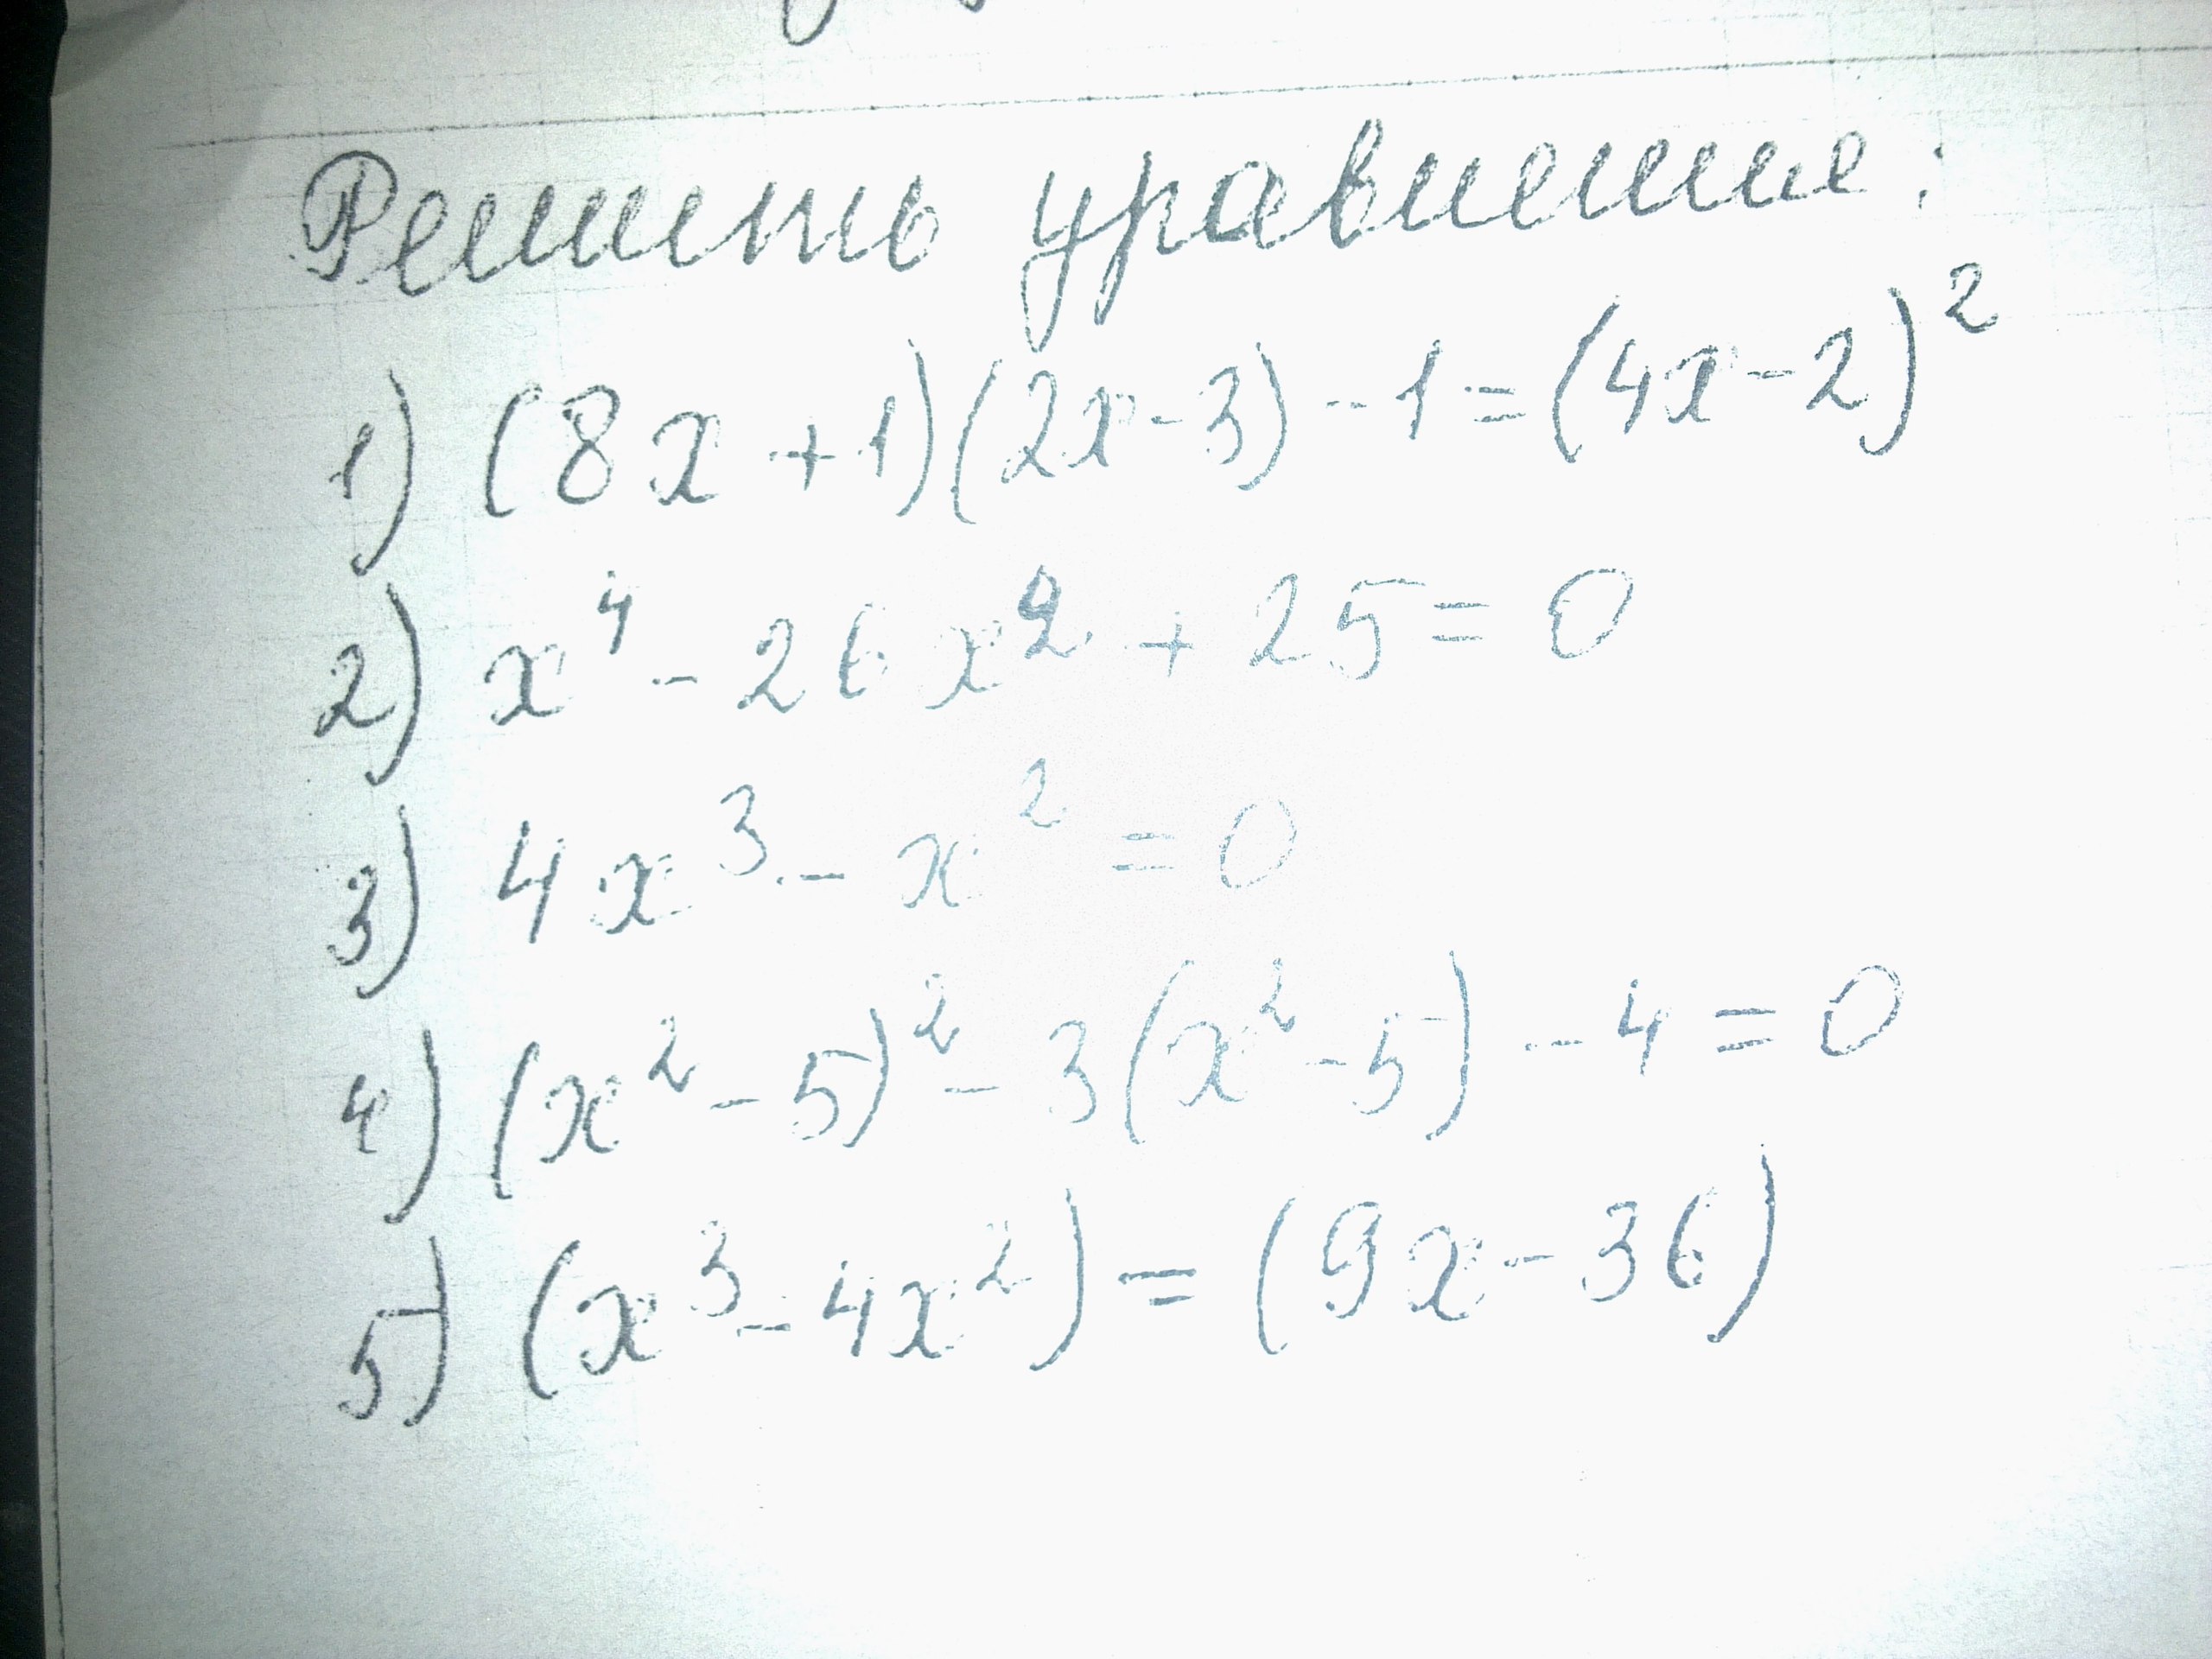 Решить уравнение:
1) (8x+1)(2x-3)-1=(4x-2)²
2) x⁴-26x²+25=0
3) 4x³-x²=0
4) (x²-5)²-3(x²-5)-4=0
5) (x³-4x²)=(9x-36)